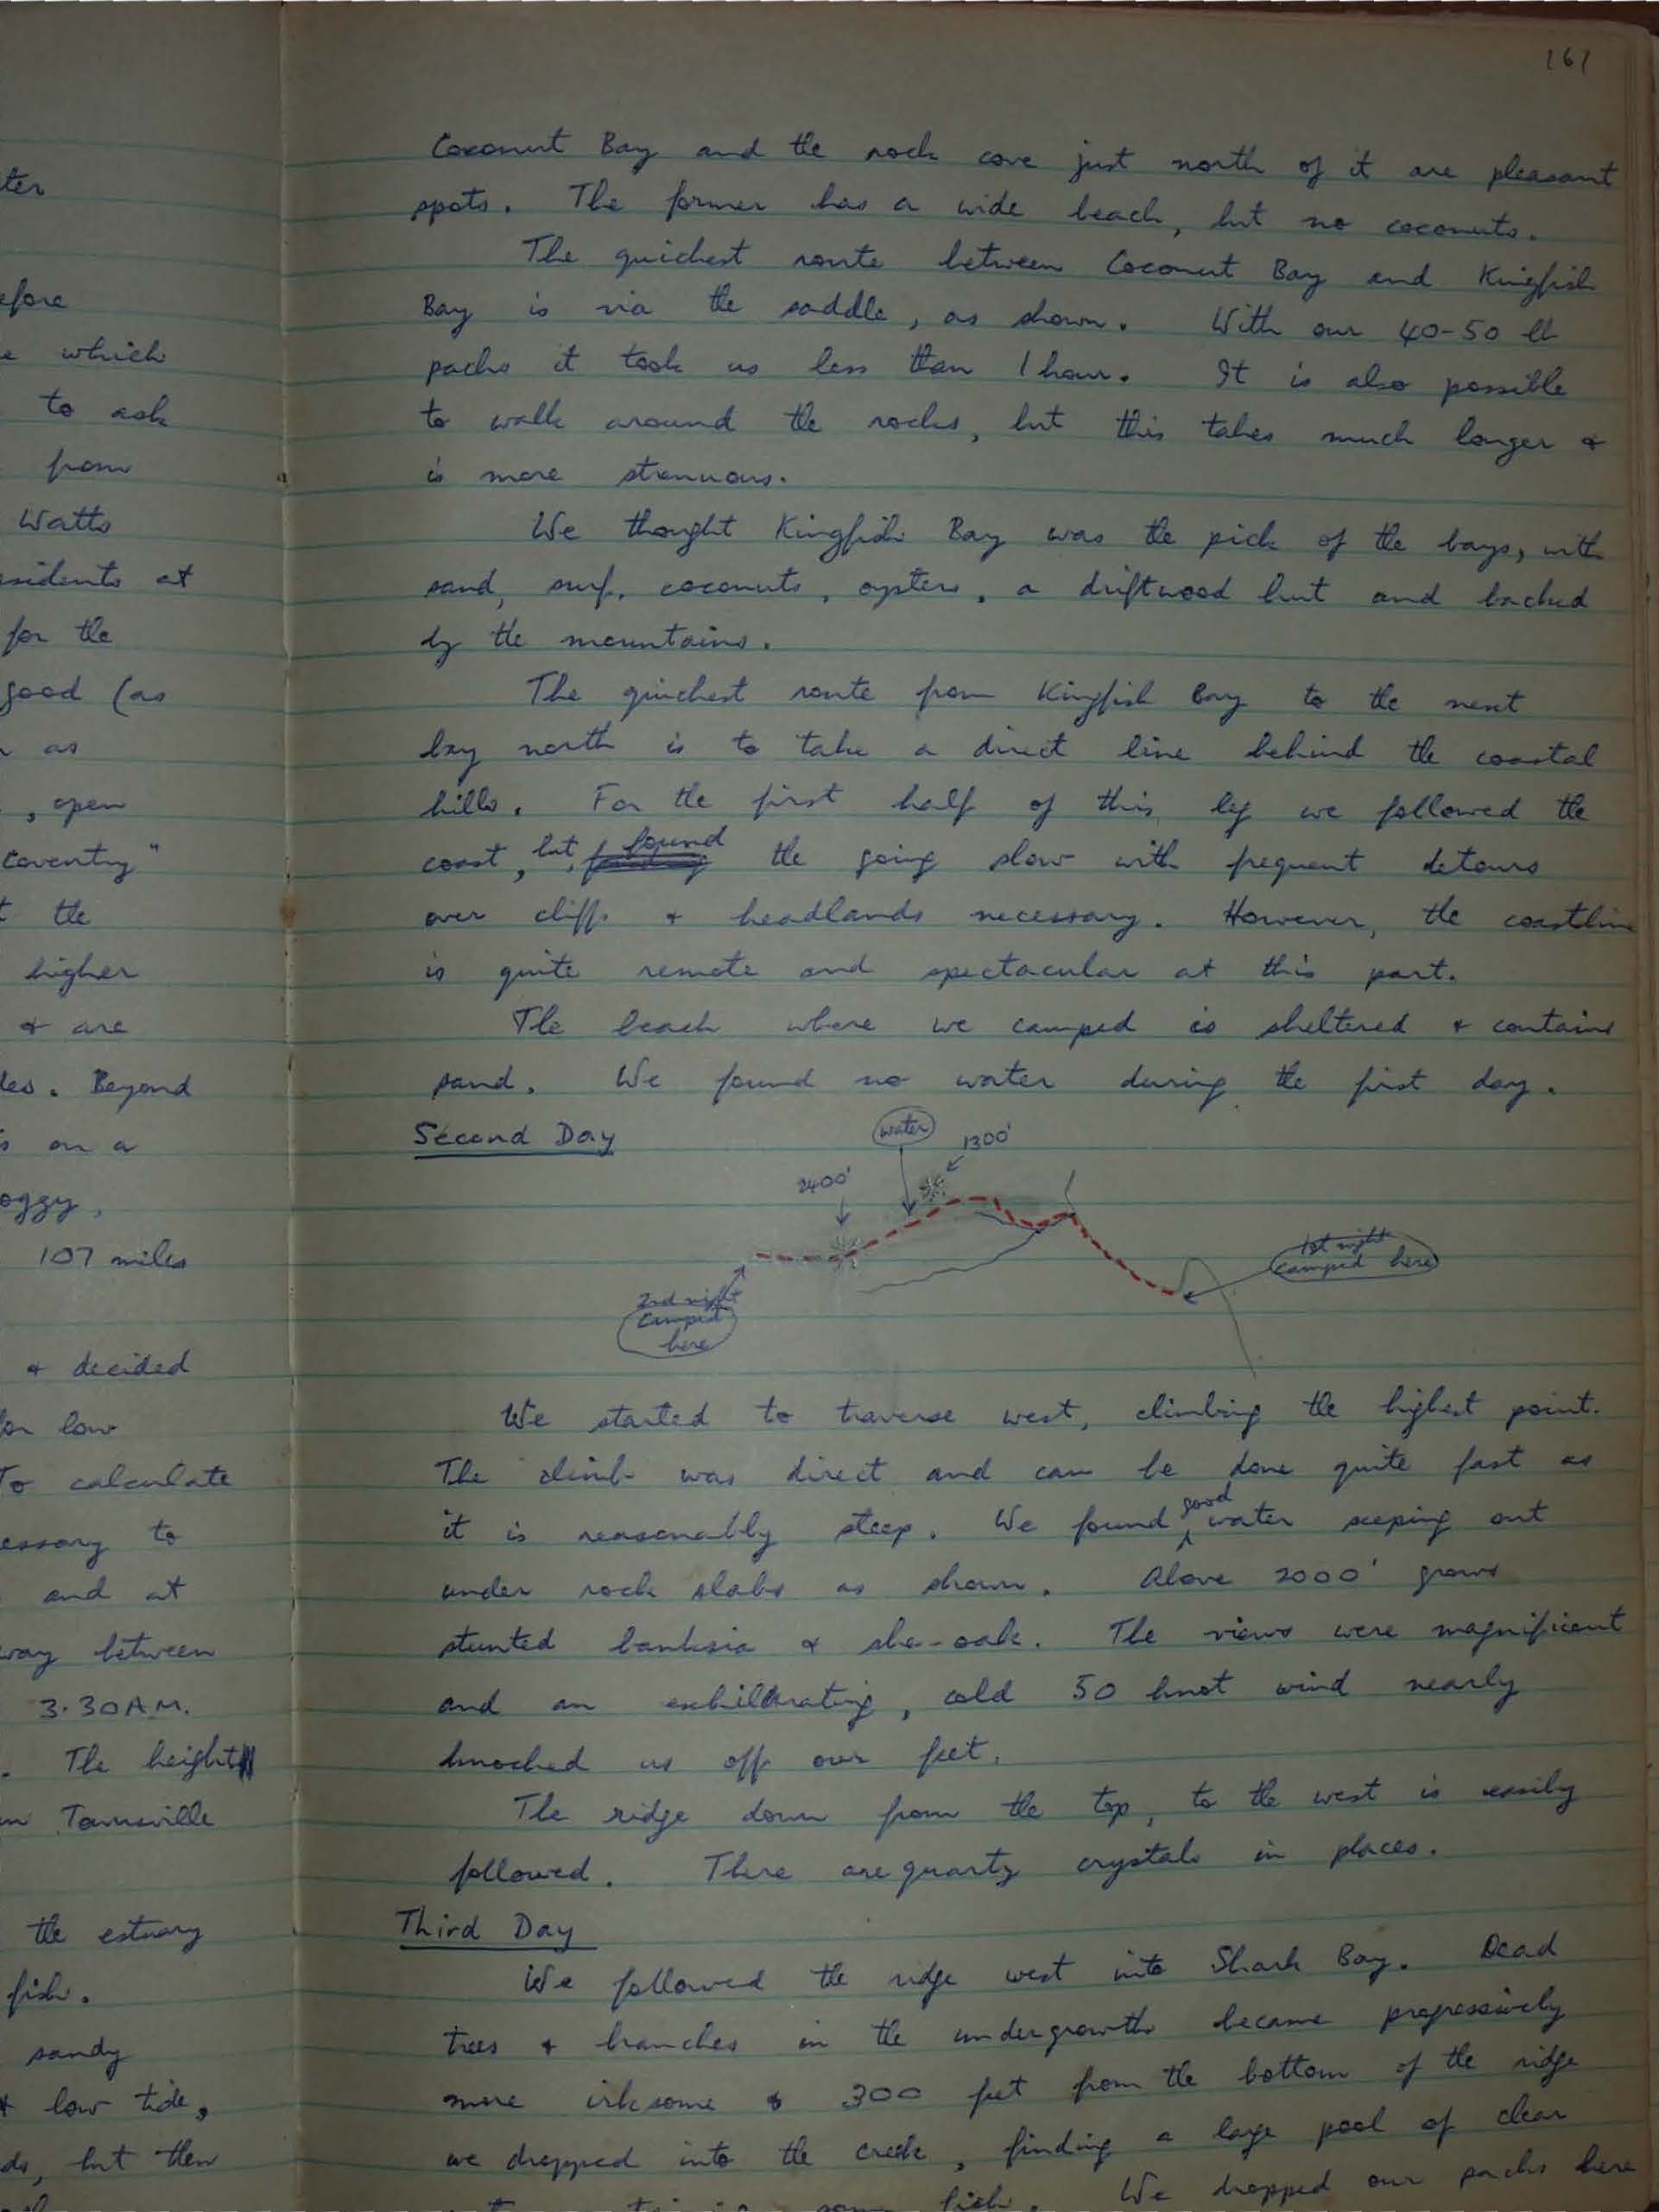 ter
efore
e which
to ask
from
Watts
esidents at
for the
good (as
as
, open
Coventry"
t the
higher
& are
les. Beyond
s on a
oggy,
107 miles
& decided
for low
To calculate
essary to
and at
way between
3.30 A.M.
. The height
Townsville
the estuary
fish.
sandy
low tide,
but then
161
Coconut Bay and the rock cove just north of it are pleasant
spots. The former has a wide beach, but no coconuts.
The quickest route between Coconut Bay and Kingfish
Bay is via the saddle, as shown. With our 40-50 lb
packs it took us less than 1 hour. It is also possible
to walk around the rocks, but this takes much longer &
is more strenuous.
We thought Kingfish Bay was the pick of the bays, with
sand, surf, coconuts, oysters, a driftwood hut and backed
by the mountains.
The quickest route from Kingfish Bay to the next
bay north is to take a direct line behind the coastal
hills. For the first half of this leg we followed the
coast, but found the going slow with frequent detours
over cliffs & headlands necessary. However, the coastline
is quite remote and spectacular at this part.
The beach where we camped is sheltered & contains
sand. We found no water during the first day.
Second Day
water
1300'
2400'
1st night
camped here
2nd night
camped
here
We started to traverse west, climbing the highest point.
The climb was direct and can be done quite fast as
it is reasonably steep. We found good water seeping out
under rock slabs as shown. Above 2000' grows
stunted banksia & she-oak. The views were magnificent
and an exhillarating, cold 50 knot wind nearly
knocked us off our feet.
The ridge down from the top, to the west is easily
followed. There are quartz crystals in places.
Third Day
We followed the ridge west into Shark Bay. Dead
trees & branches in the undergrowth became progressively
more irksome & 300 feet from the bottom of the ridge
we dropped into the creek, finding a large pool of clear
some fish. We dropped our packs here